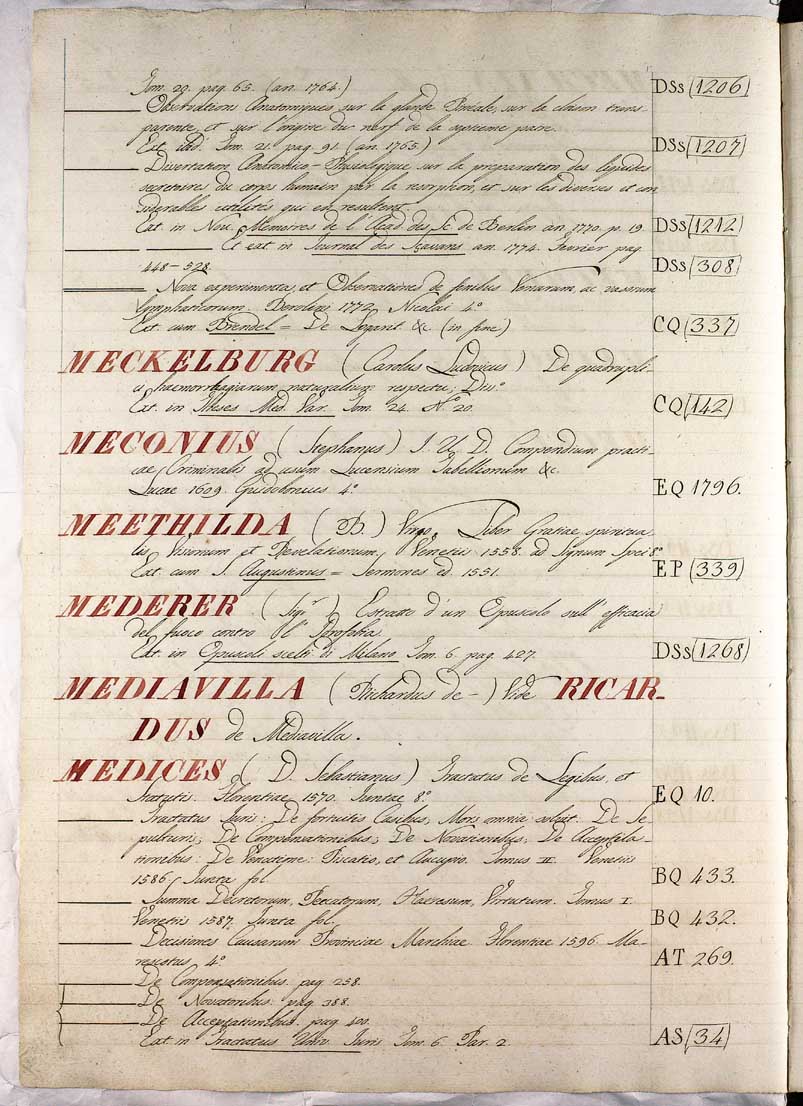 Tom. 20. pag. 65. (an. 1764.) DSs (1206)
Observations Anatomiques sur la glande Pinéale, sur la cloison trans-
parente, et sur l'origine du nerf de la septieme paire.
Ext. ibid. Tom. 21. pag. 91. (an. 1765.) DSs (1207)
Dissertation Anatomico-Physiologique sur la preparation des liquides
secretoires du corps humain par la resorption, et sur les diverses et con
siderables utilités qui en resultent.
Ext. in Nou. Memoires de l'Acad. des Sc. de Berlin an. 1770. p. 19. DSs (1212)
Et ext. in Journal des Sçavans an. 1774. Fevrier pag.
448-528. DSs (308)
Nova experimenta, et Observationes de finibus Venarum, ac vasorum
lymphaticorum. Berolini 1772. Nicolai 4.°
Ext. cum Brendel = De Logant &c. (in fine) CQ (337)
MECKELBURG (Carolus Ludovicus) De quadrupli-
ci haemorrhagiarum naturalium respectu; Diss.°
Ext. in Theses Med. Var. Tom. 24. N.° 20. CQ (142)
MECONIUS (Stephanus) I. U. D. Compendium practi-
cae Criminalis ad usum Lucensium Tabellionum &c.
Lucae 1609. Guidobonius 4.° EQ 1796.
MEETHILDA (B.) Virgo. Liber Gratiae spiritua-
lis Visionum et Revelationum. Venetiis 1558. ad Signum Spei 8.°
Ext. cum S. Augustinus = Sermones ed. 1551. EP (339)
MEDERER (Sig.r) Estratto d'un Opuscolo sull'efficacia
del fuoco contro l'Idrofobia.
Ext. in Opuscoli scelti di Milano Tom. 6. pag. 427. DSs (1268)
MEDIAVILLA (Richardus de-) Vide RICAR-
DUS de Mediavilla.
MEDICES (D. Sebastianus) Tractatus de Legibus, et
Statutis. Florentiae 1570. Juntae 8.° EQ 10.
Tractatus Iuris: De fortuitis Casibus; Mors omnia solvit. De Se
pulturis; De Compensationibus; De Novationibus; De Acceptila-
tionibus: De Venatione: Piscatio, et Aucupio. Tomus II. Venetiis
1586. Junta fol. BQ 433.
Summa Decretorum, Peccatorum, Haeresum, Virtutum. Tomus I.
Venetiis 1587. Junta fol. BQ 432.
Decisiones Causarum Provinciae Marchiae. Florentiae 1596. Ma-
rescotus 4.° AT 269.
De Compensationibus. pag. 258.
De Novationibus. pag. 388.
De Acceptationibus. pag. 400.
Ext. in Tractatus Univ. Iuris Tom. 6. Par. 2. AS (34)